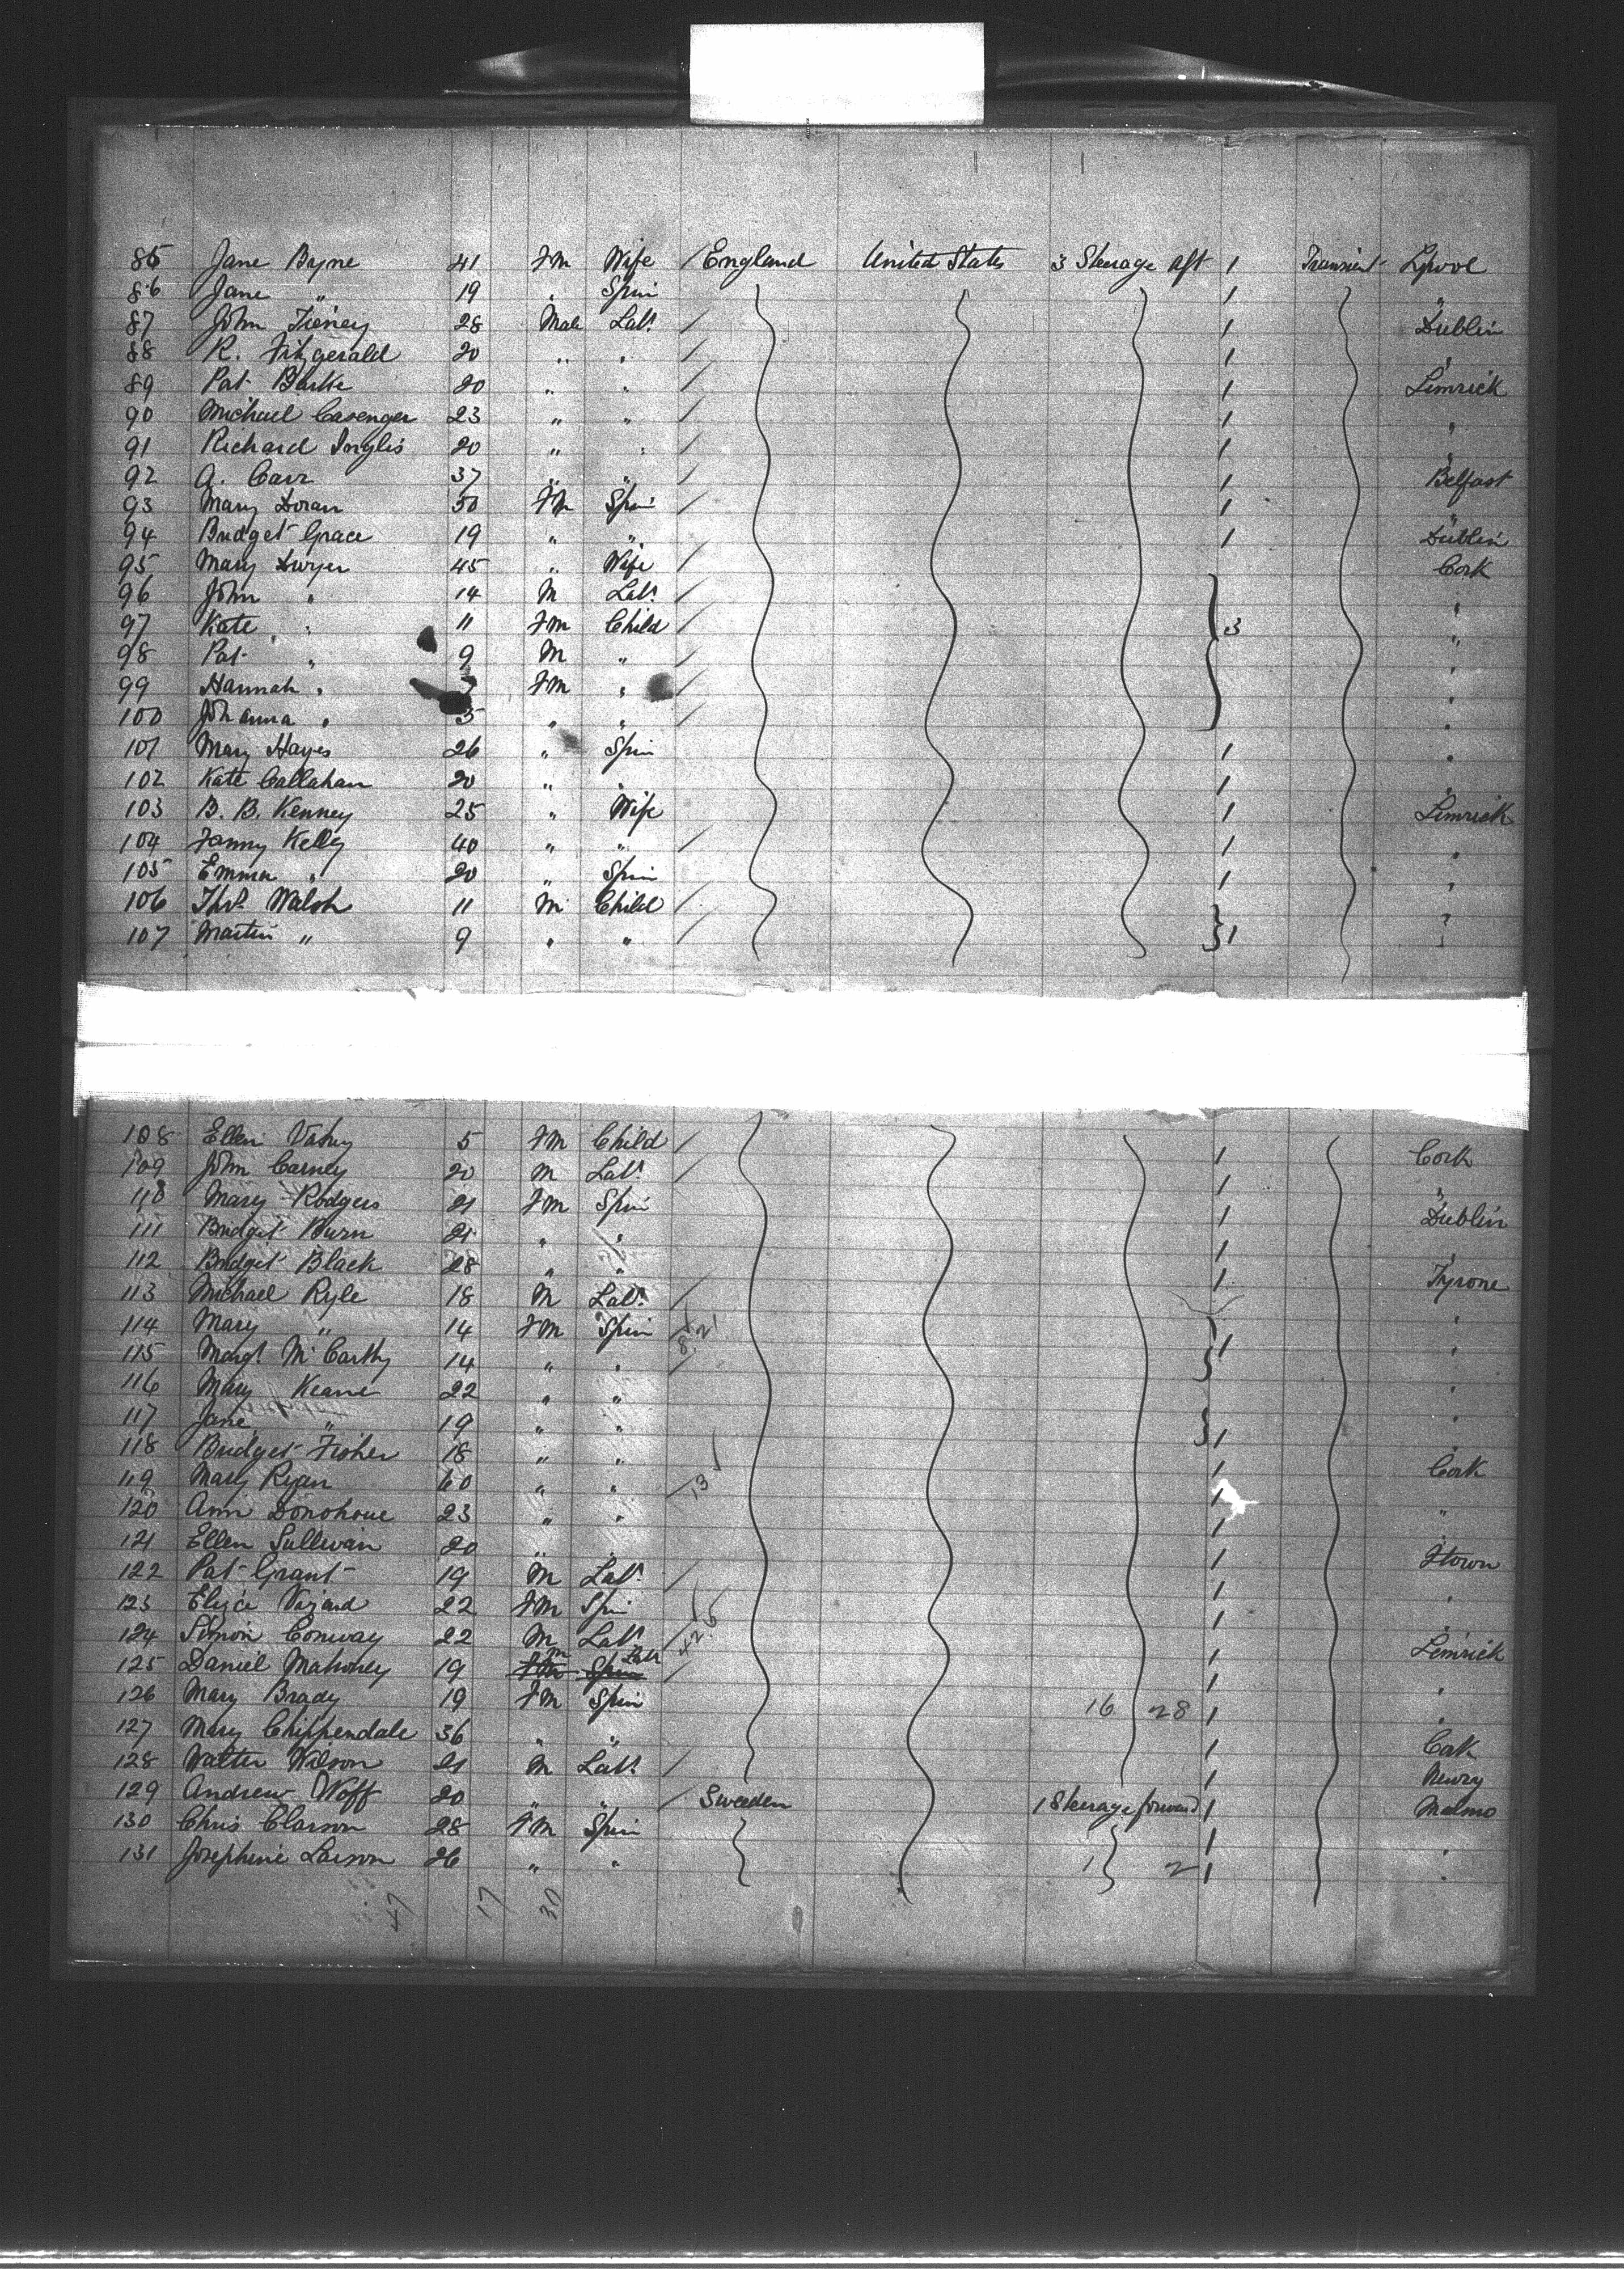 85 Jane Bayne 41 Fm Wife / England United States 3 Steerage Aft 1 Transient Lpool
86 Jane " 19 " Spin 1 "
87 John Tierney 28 Male Labr / 1 Dublin
88 R. Fitzgerald 20 " " / 1 "
89 Pat Burke 20 " " / 1 Limrick
90 Michael Casenger 23 " " / 1 "
91 Richard Inglis 20 " " / 1 "
92 A. Carr 37 " " / 1 Belfast
93 Mary Doran 50 Fm Spin / 1 "
94 Bridget Grace 19 " " 1 Dublin
95 Mary Dwyer 45 " Wife / Cork
96 John " 14 M Labr / "
97 Kate " 11 Fm Child / 3 "
98 Pat " 9 M " / "
99 Hannah " Fm " / "
100 Johanna " 3 " " / "
101 Mary Hayes 26 " Spin 1 "
102 Kate Callahan 20 " " 1 "
103 B. B. Kenney 25 " Wife 1 Limrick
104 Fanny Kelly 40 " " / 1 "
105 Emma " 20 " Spin 1 "
106 Thos Walsh 11 M Child / "
107 Martin " 9 " " / 1 "
108 Ellen 5 Fm Child / 1 Cork
109 John Carney 20 M Labr / 1 "
110 Mary Rodgers 21 Fm Spin 1 Dublin
111 Bridget Burn 21 " " 1 "
112 Bridget Black 28 " " 1 Tyrone
113 Michael Ryle 18 M Labr / "
114 Mary " 14 Fm Spin 1 "
115 Margt McCarthy 14 " " / "
116 Mary Keane 22 " " "
117 Jane " 19 " " 1 "
118 Bridget Fisher 18 " " 1 Cork
119 Mary Ryan 60 " " 13 1 "
120 Ann Donohoue 23 " " 1 "
121 Ellen Sullivan 20 " " 1 Qtown
122 Pat Grant 19 M Labr / 1 "
123 Eliza Vizard 22 Fm Spin 1 "
124 Simon Conway 22 M Labr / 1 Limrick
125 Daniel Mahoney 19 M Labr / 1 "
126 Mary Brady 19 Fm Spin 16 28 1 "
127 Mary Chippendale 36 " " 1 Cork
128 Walter Wilson 21 M Labr / 1 Newry
129 Andrew Woff 20 " " / Sweeden 1 Steerage forward 1 Malmo
130 Chris Clarson 28 Fm Spin 1 "
131 Josephine Larson 26 " " 1 2 1 "
47 17 30